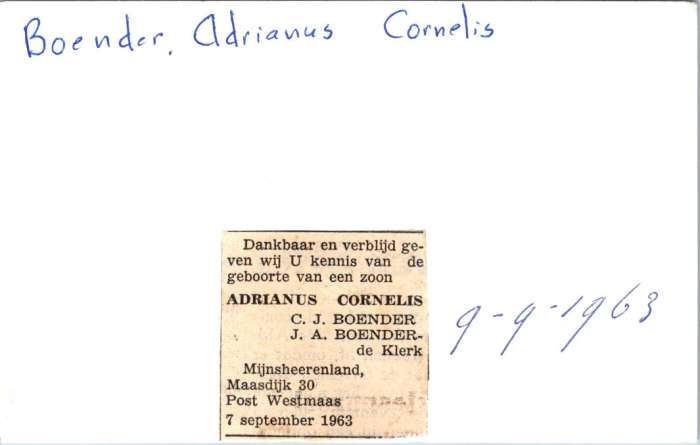 Boender, Adrianus Cornelis
Dankbaar en verblijd ge-
ven wij U kennis van de
geboorte van een zoon
ADRIANUS CORNELIS
C. J. BOENDER
J. A. BOENDER-
de Klerk
Mijnsheerenland,
Maasdijk 30
Post Westmaas
7 september 1963
9-9-1963